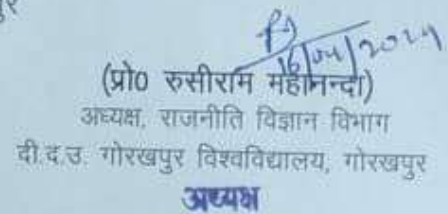 पुर
16/04/2024
(प्रो0 रुसीराम महानन्दा)
अध्यक्ष, राजनीति विज्ञान विभाग
दी.द.उ. गोरखपुर विश्वविद्यालय, गोरखपुर
अध्यक्ष